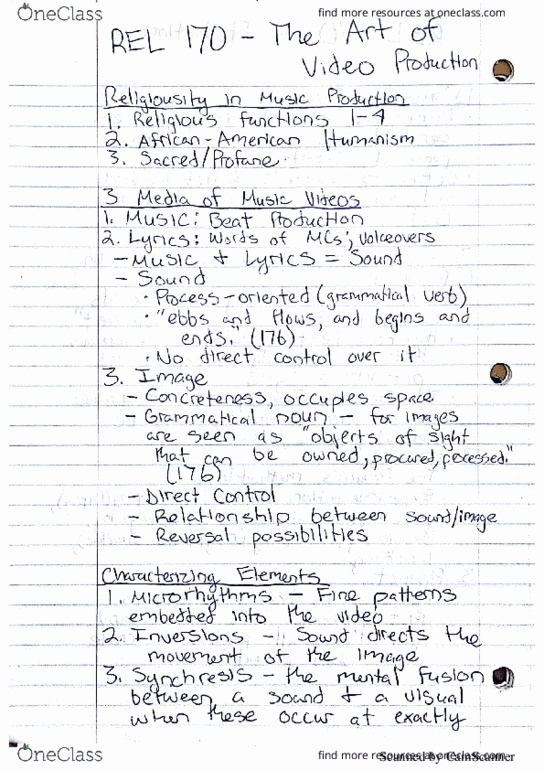 OneClass
find more resources at oneclass.com
REL 170 - The Art of
Video Production
Religiousity in Music Production
1. Religious functions 1-4
2. African-American Humanism
3. Sacred/Profane
3 Media of Music Videos
1. Music: Beat Production
2. Lyrics: Words of MCs; voiceovers
- Music + Lyrics = Sound
- Sound
· Process-oriented (grammatical verb)
· "ebbs and flows, and begins and
ends." (176)
· No direct control over it
3. Image
- Concreteness, occupies space
- Grammatical noun - for images
are seen as "objects of sight
that can be owned, procured, pocessed."
(176)
- Direct Control
- Relationship between sound/image
- Reversal possibilities
Characterizing Elements
1. Microrhythms - Fine patterns
embedded into the video
2. Inversions - Sound directs the
movement of the image
3. Synchresis - the mental fusion
between a sound + a visual
when these occur at exactly
OneClass
find more resources at oneclass.com
Scanned by CamScanner